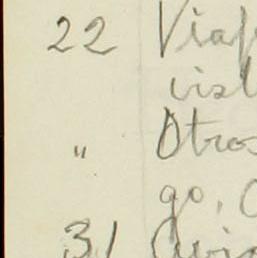 22 Viaj
vist
" Otros
go,
31